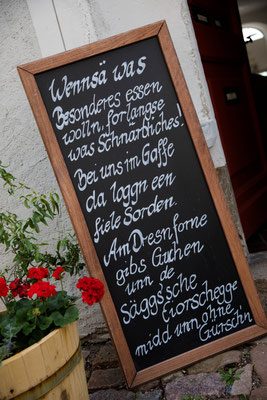 Wennsä was
Besonderes essen
wolln, forlangse
was Schnärbliches!
Bei uns im Gaffe
da laggn een
fiele Sorden.
Am Dresn, forne
gibs Guchen
unn de
Säggs'sche
Eiorschegge
midd unn ohne
Gurschn'